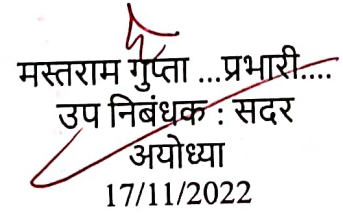 मस्तराम गुप्ता ...प्रभारी....
उप निबंधक : सदर
अयोध्या
17/11/2022